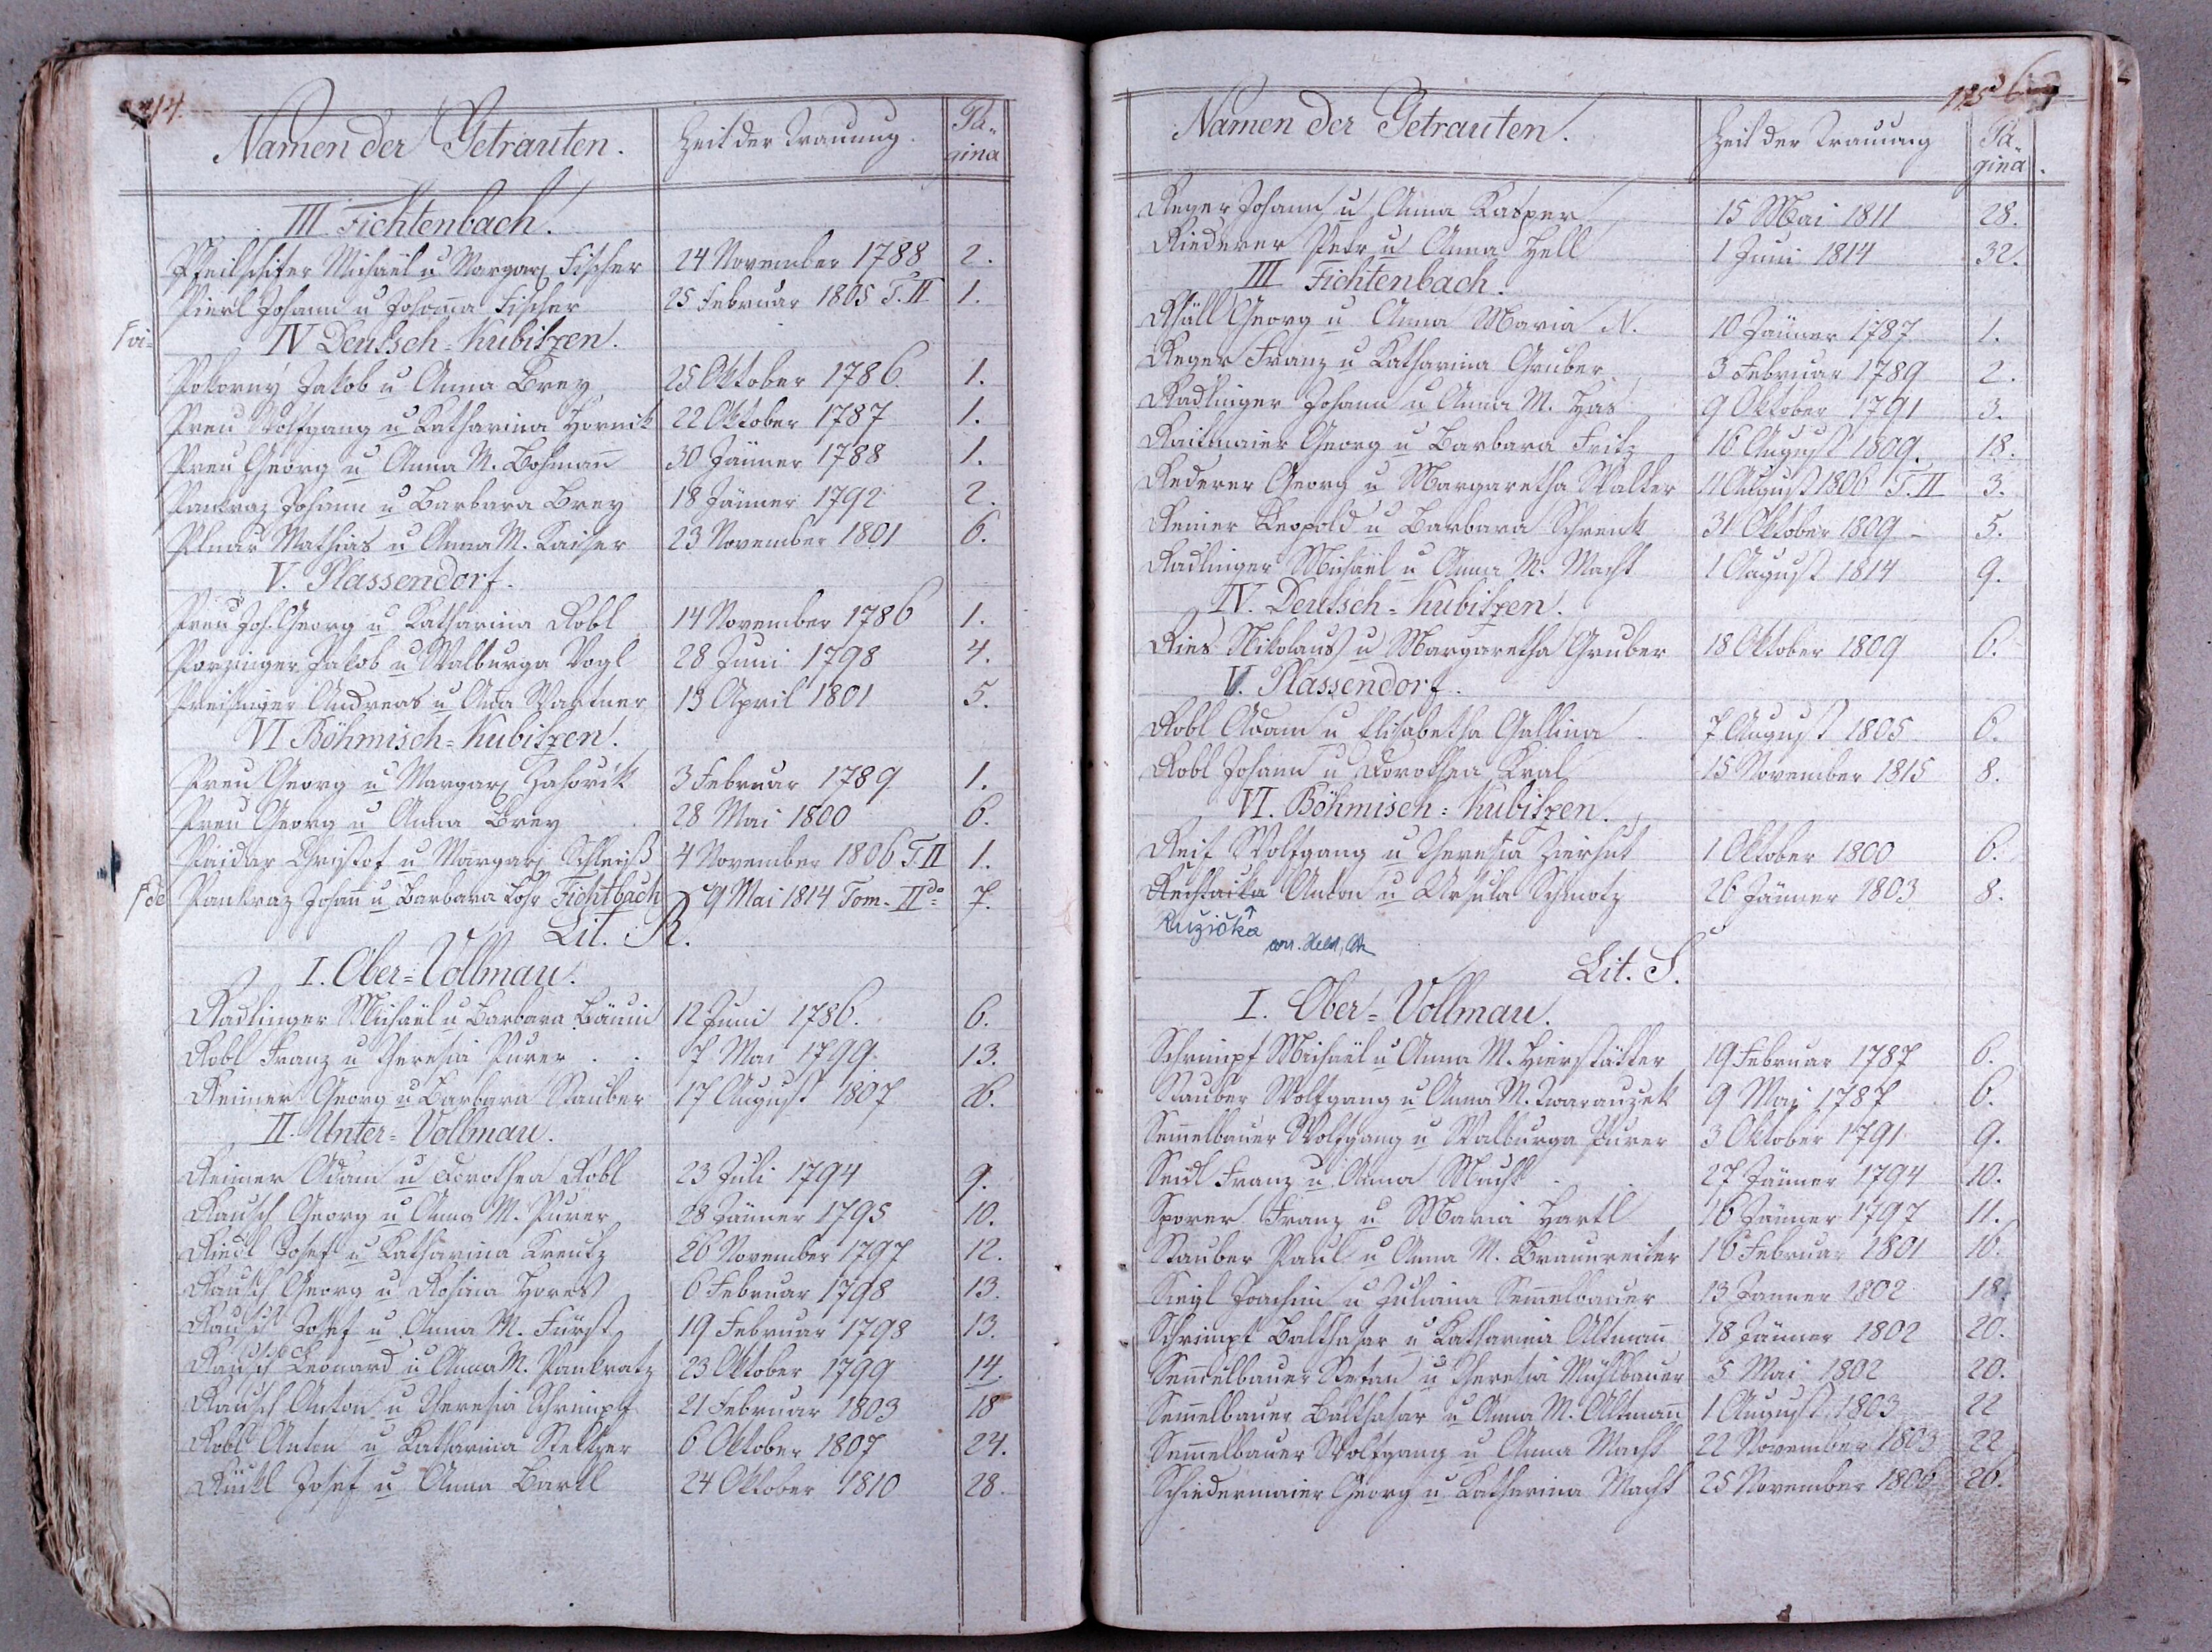 114.
Namen der Getrauten. Zeit der Trauung. Pagina
III. Fichtenbach.
Pfeilschifter Michaël u Margar. Fischer 24 November 1788 2.
Pierl Johann u Johanna Fischer 25 Februar 1805 T. II 1.
IV Deutsch=Kubitzen.
Pokorný Jakob u Anna Brey 25 Oktober 1786. 1.
Preu Wolfgang u Katharina Hornik 22 Oktober 1787 1.
Preu Georg u Anna M. Bohman̄ 30 Jänner 1788 1.
Pankraz Johann u Barbara Brey 18 Jänner 1792 2.
Mathias u Anna M. Kaiser 23 November 1801 6.
V. Plassendorf.
Preu Joh. Georg u Katharina Robl 14 November 1786 1.
Porzinger Jakob u Walburga Vogl 28 Juni 1798 4.
Preisinger Andreas u Wartner 13 April 1801 5.
VI Böhmisch=Kubitzen.
Preu Georg u Margar. Zahorik 3 Februar 1789 1.
Preu Georg u Anna Brey 28 Mai 1800 6.
Paidar Christof u Margar. Schleiß 4 November 1806 T. II 1.
Pankraz Johan̄ u Barbara Lohr Fichtbach 9 Mai 1814 Tom. IIdo 7.
Lit. R.
I. Ober=Vollmau.
Radlinger Michaël u Barbara Bäum 12 Juni 1786. 6.
Robl Franz u Theresia Purer 7 Mai 1799. 13.
Reimer Georg u Barbara Stauber 17 August 1807 26.
II. Unter=Vollmau.
Reimer Adam u Dorothea Robl 23 Juli 1794 9.
Rausch Georg u Anna M. Purer 28 Jänner 1795 10.
Riedl Josef u Katharina Kreutz 26 November 1797 12.
Rausch Georg u Rosina Hores 6 Februar 1798 13.
Rausch Josef u Anna M. Fürst 19 Februar 1798 13.
Rausch Leonard u Anna M. Pankratz 23 Oktober 1799 14.
Rausch Anton u Theresia Schrimpf 21 Februar 1803 18
Robl Anton u Katharina Steltzer 6 Oktober 1807 24.
Rückl Josef u Anna Bartl 24 Oktober 1810 28.
115
Namen der Getrauten. Zeit der Trauung Pagina.
Reger Johann u Anna Kasper 15 Mai 1811 28.
Riederer Petr u Anna Hell 1 Juni 1814 32.
III Fichtenbach.
Georg u Anna Maria N. 10 Jänner 1787 1.
Reger Franz u Katharina Gruber 3 Februar 1789 2.
Radlinger Johann u Anna M. Has 9 Oktober 1791 3.
Raitmaier Georg u Barbara Fritz 16 August 1809. 18.
Rederer Georg u Margaretha Walter 11 August 1806 T. II 3.
Reiner Leopold u Barbara Schrenk 31 Oktober 1809 – 5.
Radlinger Michaël u Anna M. Macht 1 August 1814 9.
IV. Deutsch=Kubitzen.
Ries Nikolaus u Margaretha Gruber 18 Oktober 1809 6.
V. Plassendorf.
Robl Adam u Elisabetha Gallina 7 August 1805 6.
Robl Johann u Dorothea Kral 15 November 1815 8.
VI. Böhmisch=Kubitzen.
Reif Wolfgang u Theresia Zierhut 1 Oktober 1800 6.
Anton u Ursula Schmotz 26 Jänner 1803 8.
Ružička
Lit. S.
I. Ober=Vollmau.
Schrimpf Michaël u Anna M. Hierstätter 19 Februar 1787 6.
Stauber Wolfgang u Anna M. Twarauzek 9 Mai 1787 6.
Sem̄elbauer Wolfgang u Walburga Purer 3 Oktober 1791 9.
Seidl Franz u Anna Macht 27 Jänner 1794 10.
Sporer Franz u Maria Hartl 16 Jänner 1797 11.
Stauber Paul u Anna M. Braunreiter 16 Februar 1801 16.
Siegl Joachim u Juliana Sem̄elbauer 13 Jänner 1802 18
Schrimpf Balthasar u Katharina Altman̄ 18 Jänner 1802 20.
Sem̄elbauer Stefan u Theresia Mühlbauer 5 Mai 1802 20.
Sem̄elbauer Balthasar u Anna M. Altman̄ 1 August 1803 22
Sem̄elbauer Wolfgang u Anna Macht 22 November 1803 22
Schiedermaier Georg u Katharina Macht 25 November 1806 26.